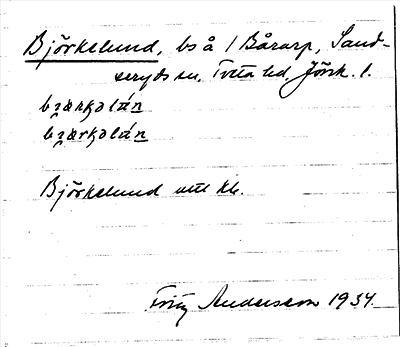 Björkelund, bs å 1 Bårarp, Sand-
seryds sn, Tveta hd, Jönk. l.
bjærkəlán
bjærkəlán
Björkelund utt kk.
Fritz Andersson 1934.